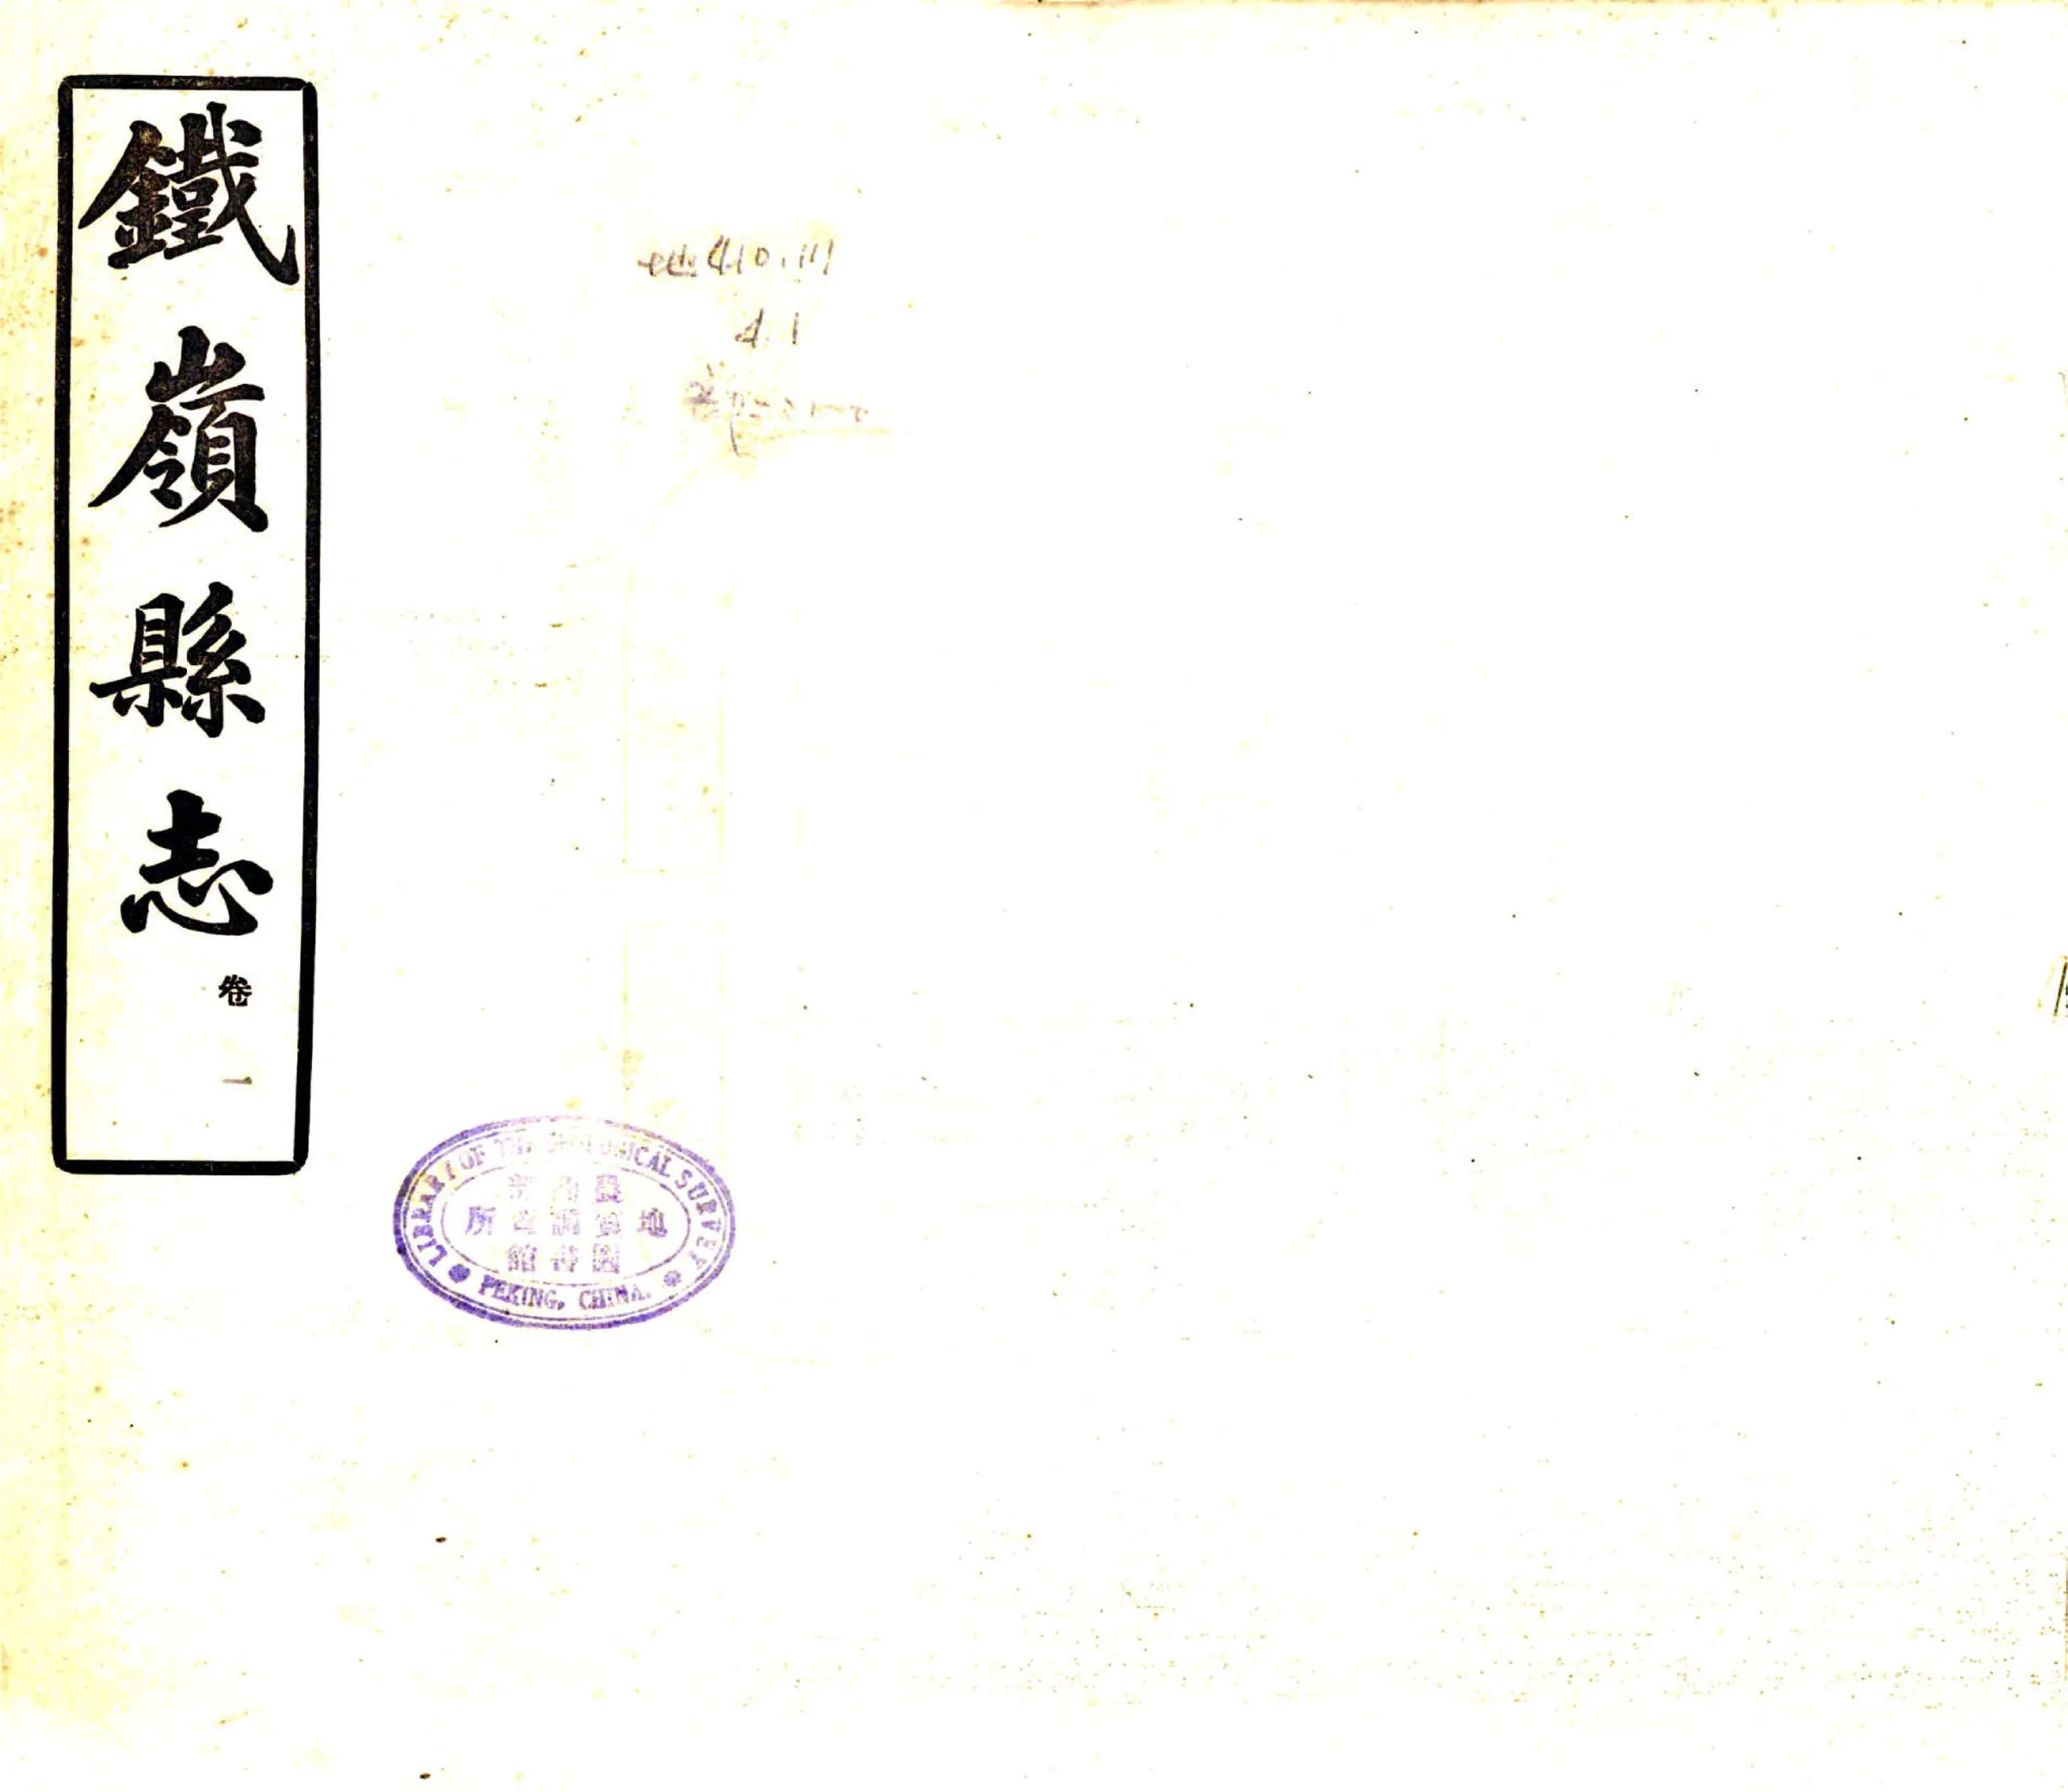 鐵嶺縣志
卷一
地410.111
4.1
LIBRARY OF THE GEOLOGICAL SURVEY
部商農
所查調質地
館書圖
PEKING, CHINA.